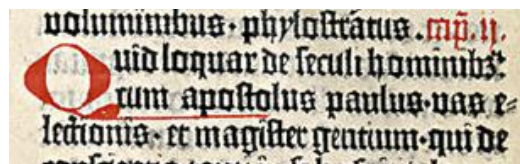 voluminibus· phylostratus. m̄p̄. ij.
Quid loquar de seculi hominibꝫ·
cum apostolus paulus· vas e⸗
lectionis· et magister gentium· qui de